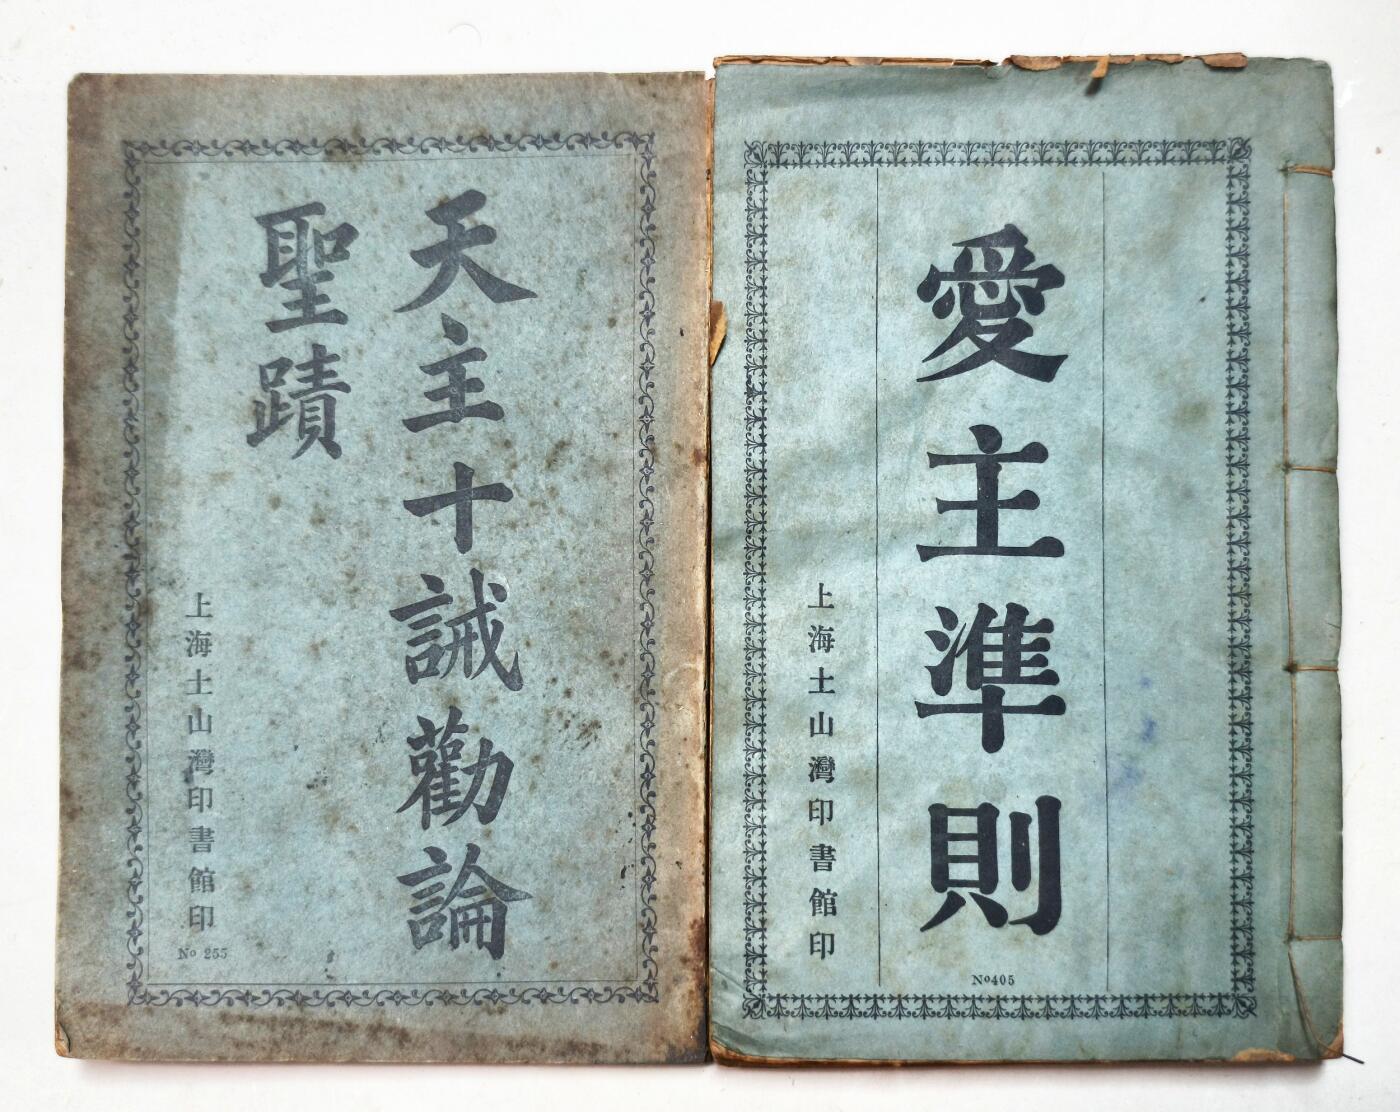 天主十誡勸論
聖蹟
上海土山灣印書館印
No 255
愛主準則
上海土山灣印書館印
No405